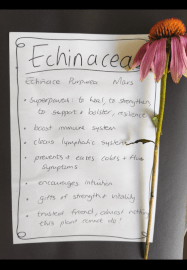 Echinacea
Echinacea Purpurea Mars
• Superpowers: to heal, to strengthen,
to support + bolster, resilience
• boost immune system
• clears lymphatic system
• prevents + eases colds + flu
symptoms
• encourages intuition
• gifts of strength + vitality
• trusted friend, almost nothing
this plant cannot do!